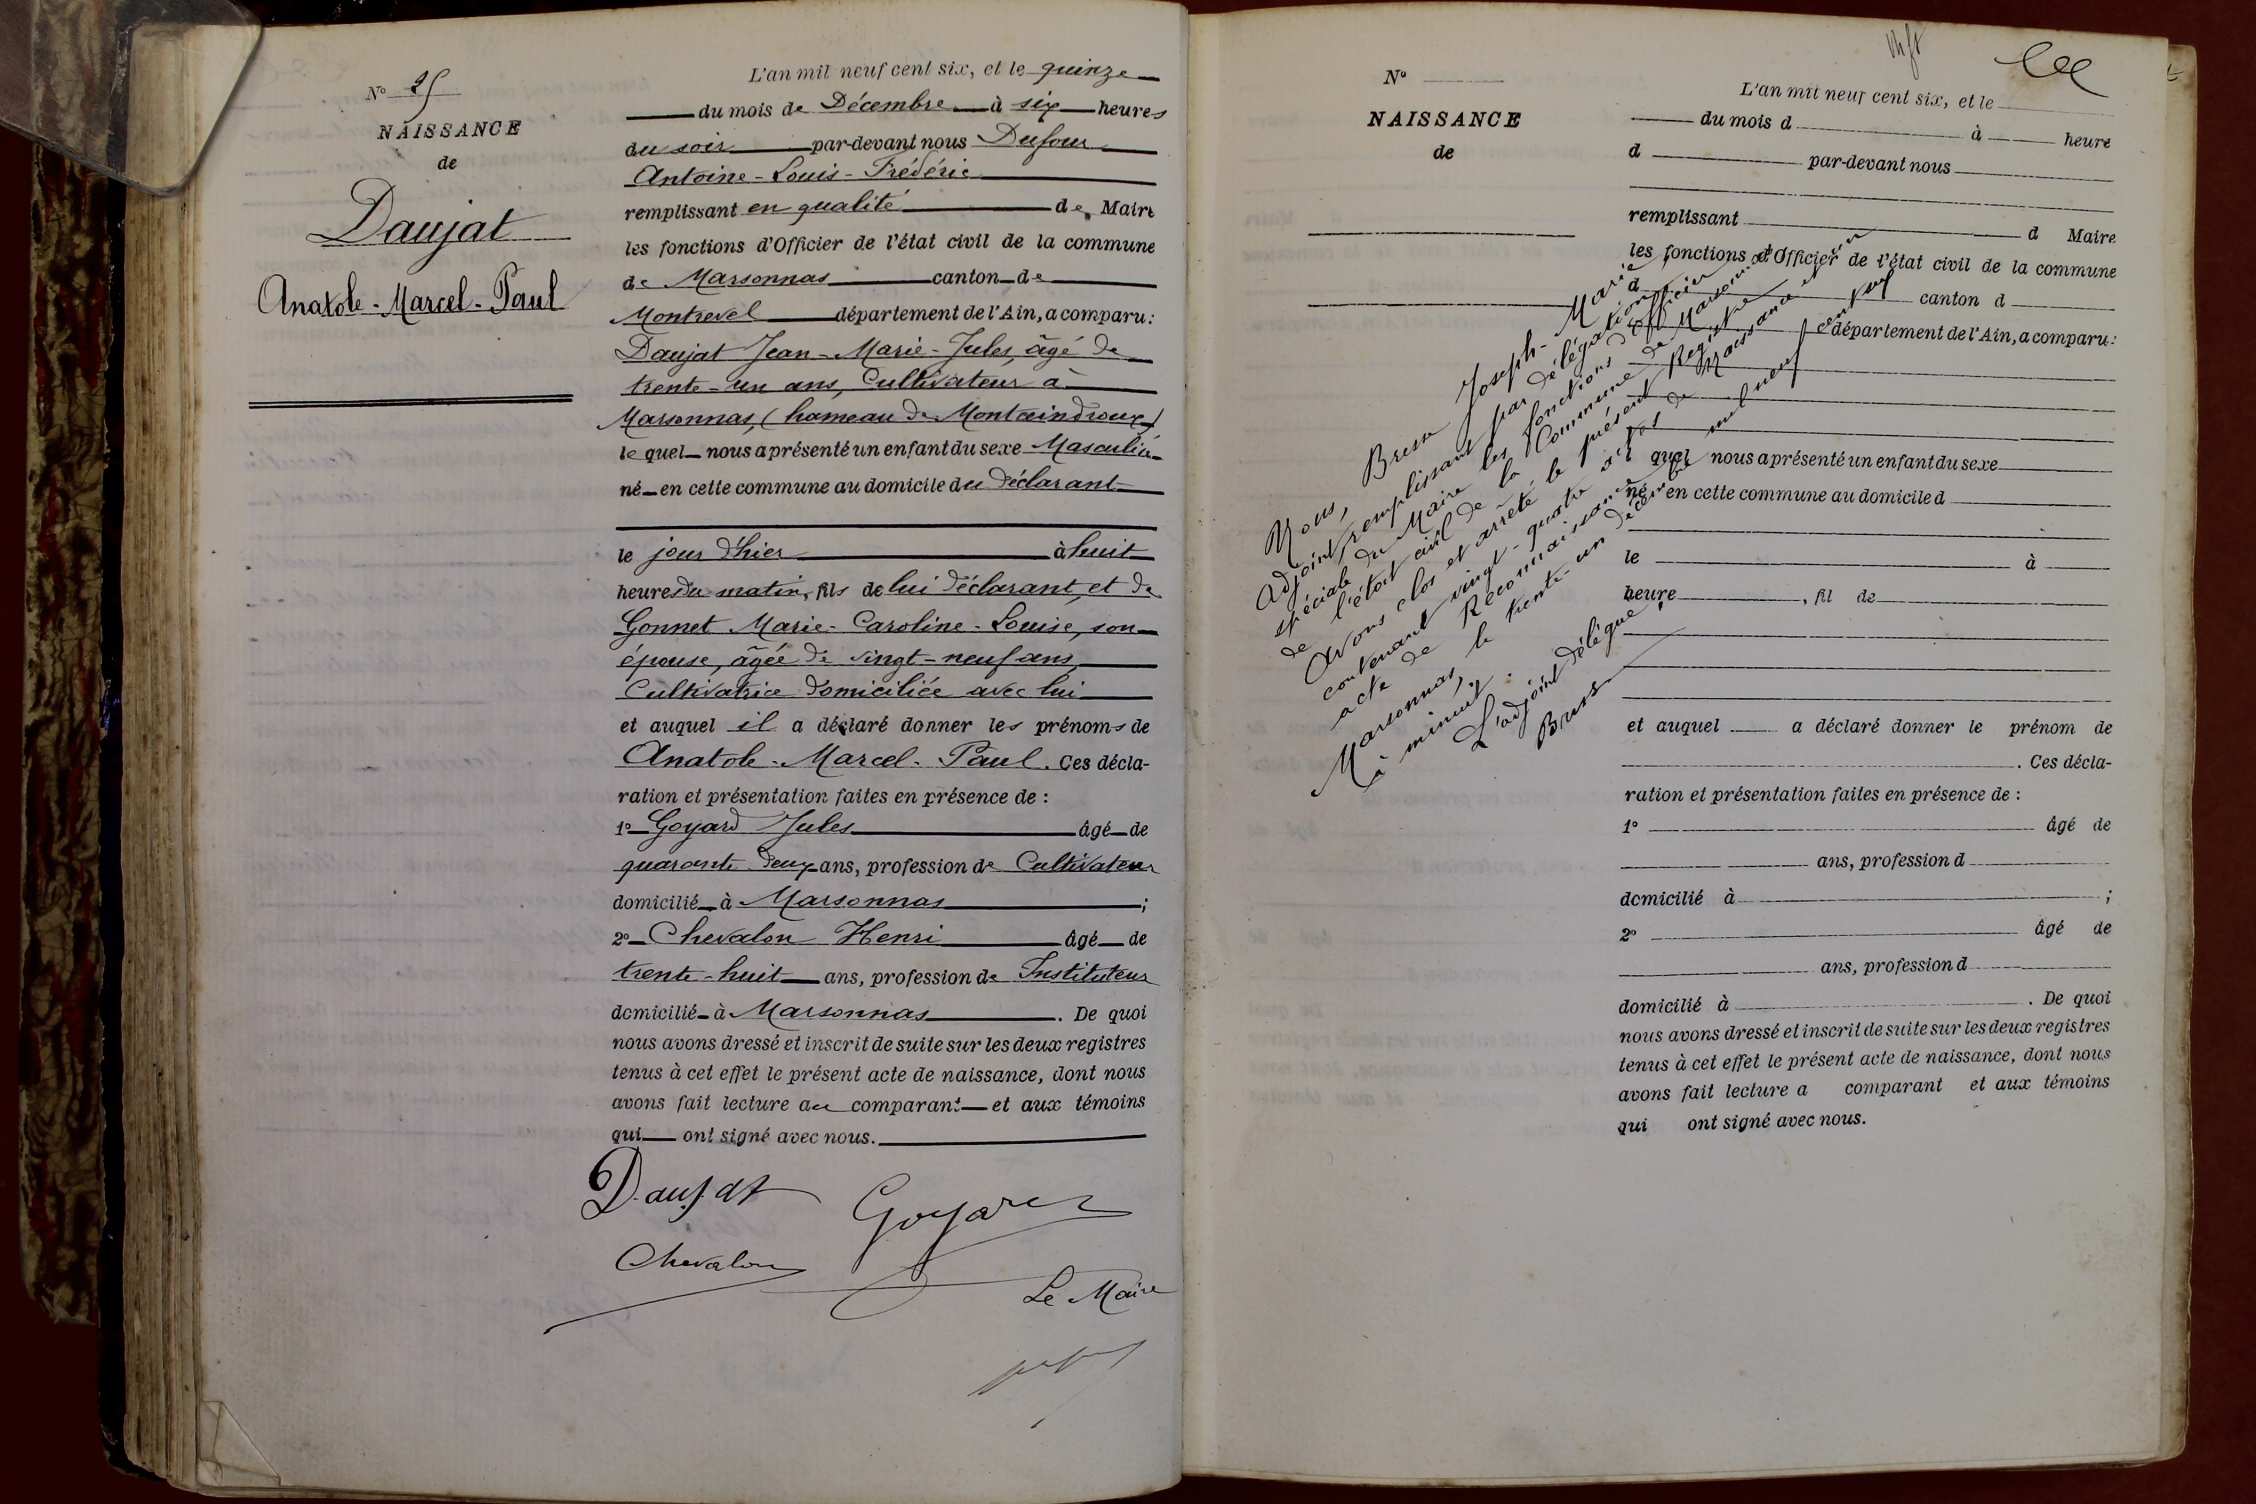 N° 25
NAISSANCE
de
Daujat
Anatole - Marcel - Paul
L'an mil neuf cent six, et le quinze
du mois de Décembre à six heures
du soir par-devant nous Dufour
Antoine - Louis - Frédéric
remplissant en qualité de Maire
les fonctions d'Officier de l'état civil de la commune
de Marsonnas canton de
Montrevel département de l'Ain, a comparu :
Daujat Jean - Marie - Jules, âgé de
trente - un ans, Cultivateur à
Marsonnas, (hameau de Montceindroux)
le quel nous a présenté un enfant du sexe Masculin
né en cette commune au domicile du déclarant
le jour d'hier à huit
heures du matin, fils de lui déclarant, et de
Gonnet Marie - Caroline - Louise, son
épouse, âgée de vingt - neuf ans,
Cultivatrice domiciliée avec lui
et auquel il a déclaré donner les prénoms de
Anatole - Marcel - Paul. Ces décla-
ration et présentation faites en présence de :
1° Goyard Jules âgé de
quarante deux ans, profession de Cultivateur
domicilié à Marsonnas ;
2° Chevalon Henri âgé de
trente - huit ans, profession de Instituteur
domicilié à Marsonnas . De quoi
nous avons dressé et inscrit de suite sur les deux registres
tenus à cet effet le présent acte de naissance, dont nous
avons fait lecture au comparant et aux témoins
qui ont signé avec nous.
Daujat Goyard
Chevalon
Le Maire
N°
NAISSANCE
de
L'an mil neuf cent six, et le
du mois d à heure
d par-devant nous
remplissant d Maire
les fonctions d'Officier de l'état civil de la commune
d canton d
département de l'Ain, a comparu :
quel nous a présenté un enfant du sexe
né en cette commune au domicile d
le à
heure , fil de
et auquel a déclaré donner le prénom de
. Ces décla-
ration et présentation faites en présence de :
1° âgé de
ans, profession d
domicilié à ;
2° âgé de
ans, profession d
domicilié à . De quoi
nous avons dressé et inscrit de suite sur les deux registres
tenus à cet effet le présent acte de naissance, dont nous
avons fait lecture a comparant et aux témoins
qui ont signé avec nous.
Nous, Joseph - Marie
Adjoint, remplissant par délégation
spéciale du Maire les fonctions d'officier
de l'état civil de la Commune de Marsonnas
Avons clos et arrêté le présent Registre
contenant vingt - quatre actes de Naissance et
acte de Reconnaissance
Marsonnas, le trente - un décembre mil neuf cent
à minuit.
L'adjoint délégué,